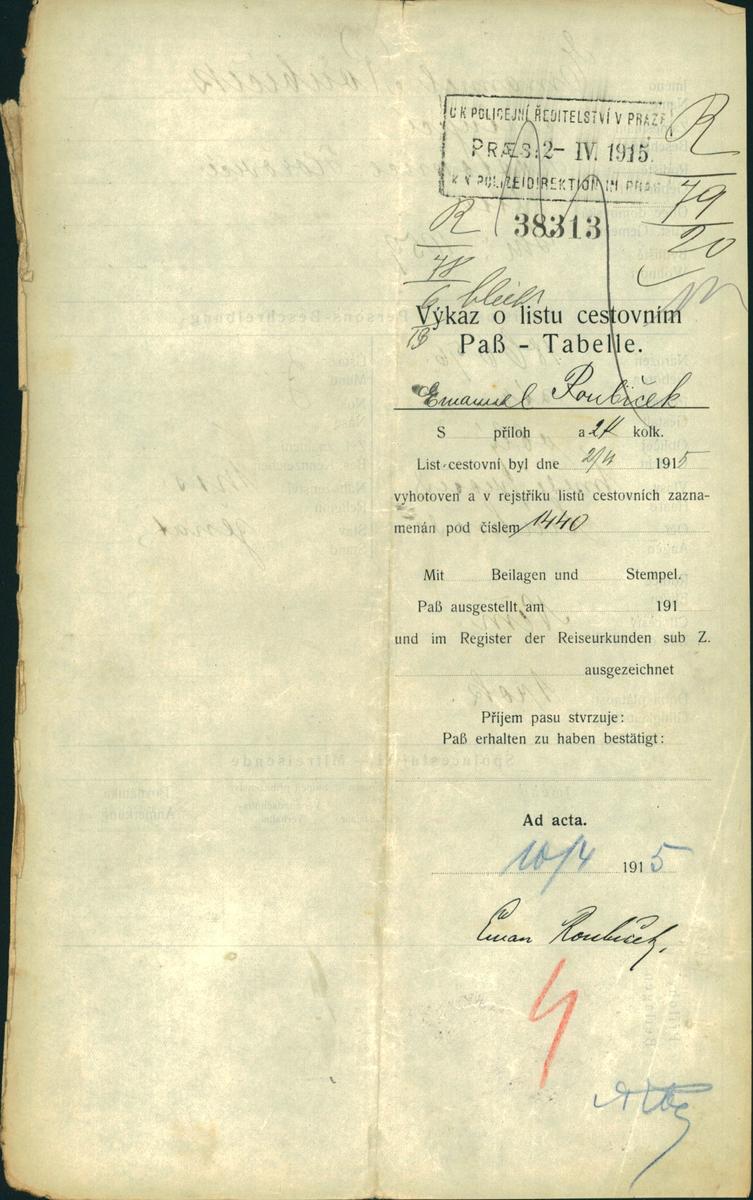 C K POLICEJNÍ ŘEDITELSTVÍ V PRAZE
PRÆS: 2- IV. 1915.
K K POLIZEIDIREKTION IN PRAG
38313
R
79
20
R
78
6
13
bleibt
Výkaz o listu cestovním
Paß - Tabelle.
Emanuel Roubíček
S příloh a 2K kolk.
List cestovní byl dne 2/4 1915
vyhotoven a v rejstříku listů cestovních zazna-
menán pod číslem 1440
Mit Beilagen und Stempel.
Paß ausgestellt am 191
und im Register der Reiseurkunden sub Z.
ausgezeichnet
Příjem pasu stvrzuje:
Paß erhalten zu haben bestätigt:
Ad acta.
10/4 1915
Eman Roubíček.